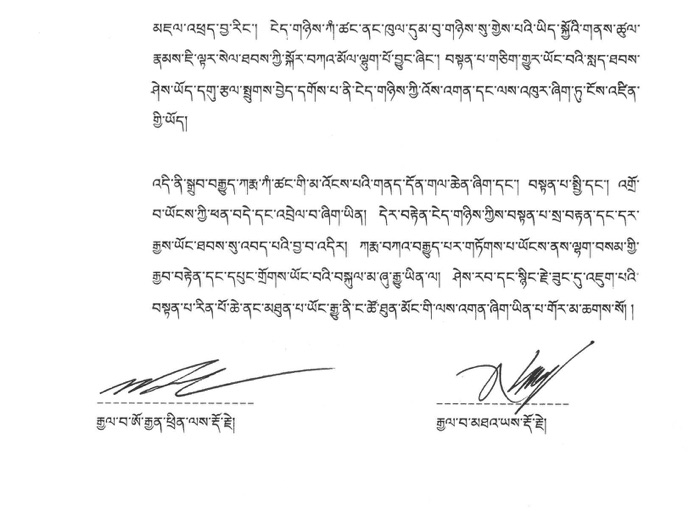 མཇལ་འཕྲད་བྱ་རིང་། ངེད་གཉིས་ཀཾ་ཚང་ནང་ཁུལ་དུམ་བུ་གཉིས་སུ་གྱེས་པའི་ཡིད་སྐྱོའི་གནས་ཚུལ་
རྣམས་ཇི་ལྟར་སེལ་ཐབས་ཀྱི་སྐོར་བཀའ་མོལ་ལྷུག་པོ་བྱུང་ཞིང་། བསྟན་པ་གཅིག་གྱུར་ཡོང་བའི་སླད་ཐབས་
ཤེས་ཡོད་དགུ་རྩལ་སྤྲུགས་བྱེད་དགོས་པ་ནི་ངེད་གཉིས་ཀྱི་འོས་འགན་དང་ལས་འཁུར་ཞིག་ཏུ་ངོས་འཛིན་
གྱི་ཡོད།
འདི་ནི་སྒྲུབ་བརྒྱུད་ཀརྨ་ཀཾ་ཚང་གི་མ་འོངས་པའི་གནད་དོན་གལ་ཆེན་ཞིག་དང་། བསྟན་པ་སྤྱི་དང་། འགྲོ་
བ་ཡོངས་ཀྱི་ཕན་བདེ་དང་འབྲེལ་བ་ཞིག་ཡིན། དེར་བརྟེན་ངེད་གཉིས་ཀྱིས་བསྟན་པ་སྲ་བརྟན་དང་དར་
རྒྱས་ཡོང་ཐབས་སུ་འབད་པའི་བྱ་བ་འདིར། ཀརྨ་བཀའ་བརྒྱུད་པར་གཏོགས་པ་ཡོངས་ནས་ལྷག་བསམ་གྱི་
རྒྱབ་བརྟེན་དང་དཔུང་གྲོགས་ཡོང་བའི་བསྐུལ་མ་ཞུ་རྒྱུ་ཡིན་ལ། ཤེས་རབ་དང་སྙིང་རྗེ་ཟུང་དུ་འཇུག་པའི་
བསྟན་པ་རིན་པོ་ཆེ་ནང་མཐུན་པ་ཡོང་རྒྱུ་ནི་ང་ཚོ་ཐུན་མོང་གི་ལས་འགན་ཞིག་ཡིན་པ་གོར་མ་ཆགས་སོ། །
རྒྱལ་བ་ཨོ་རྒྱན་ཕྲིན་ལས་རྡོ་རྗེ། རྒྱལ་བ་མཐའ་ཡས་རྡོ་རྗེ།